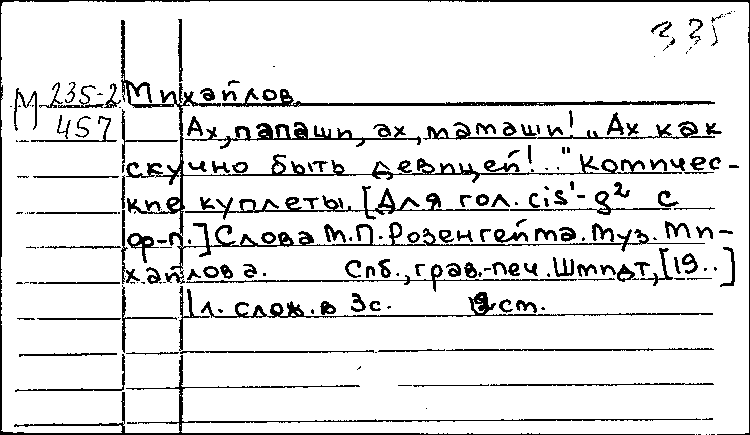 335
М 235-2 Михайлов.
457 Ах, папаши, ах, мамаши! „Ах как
скучно быть девицей!.." Комичес-
кие куплеты. [Для гол. cis¹-g² с
ф-п.] Слова М.П. Розенгейма. Муз. Ми-
хайлова. Спб., грав.-печ. Шмидт, [19..]
1 л. слож. в 3с. ст.